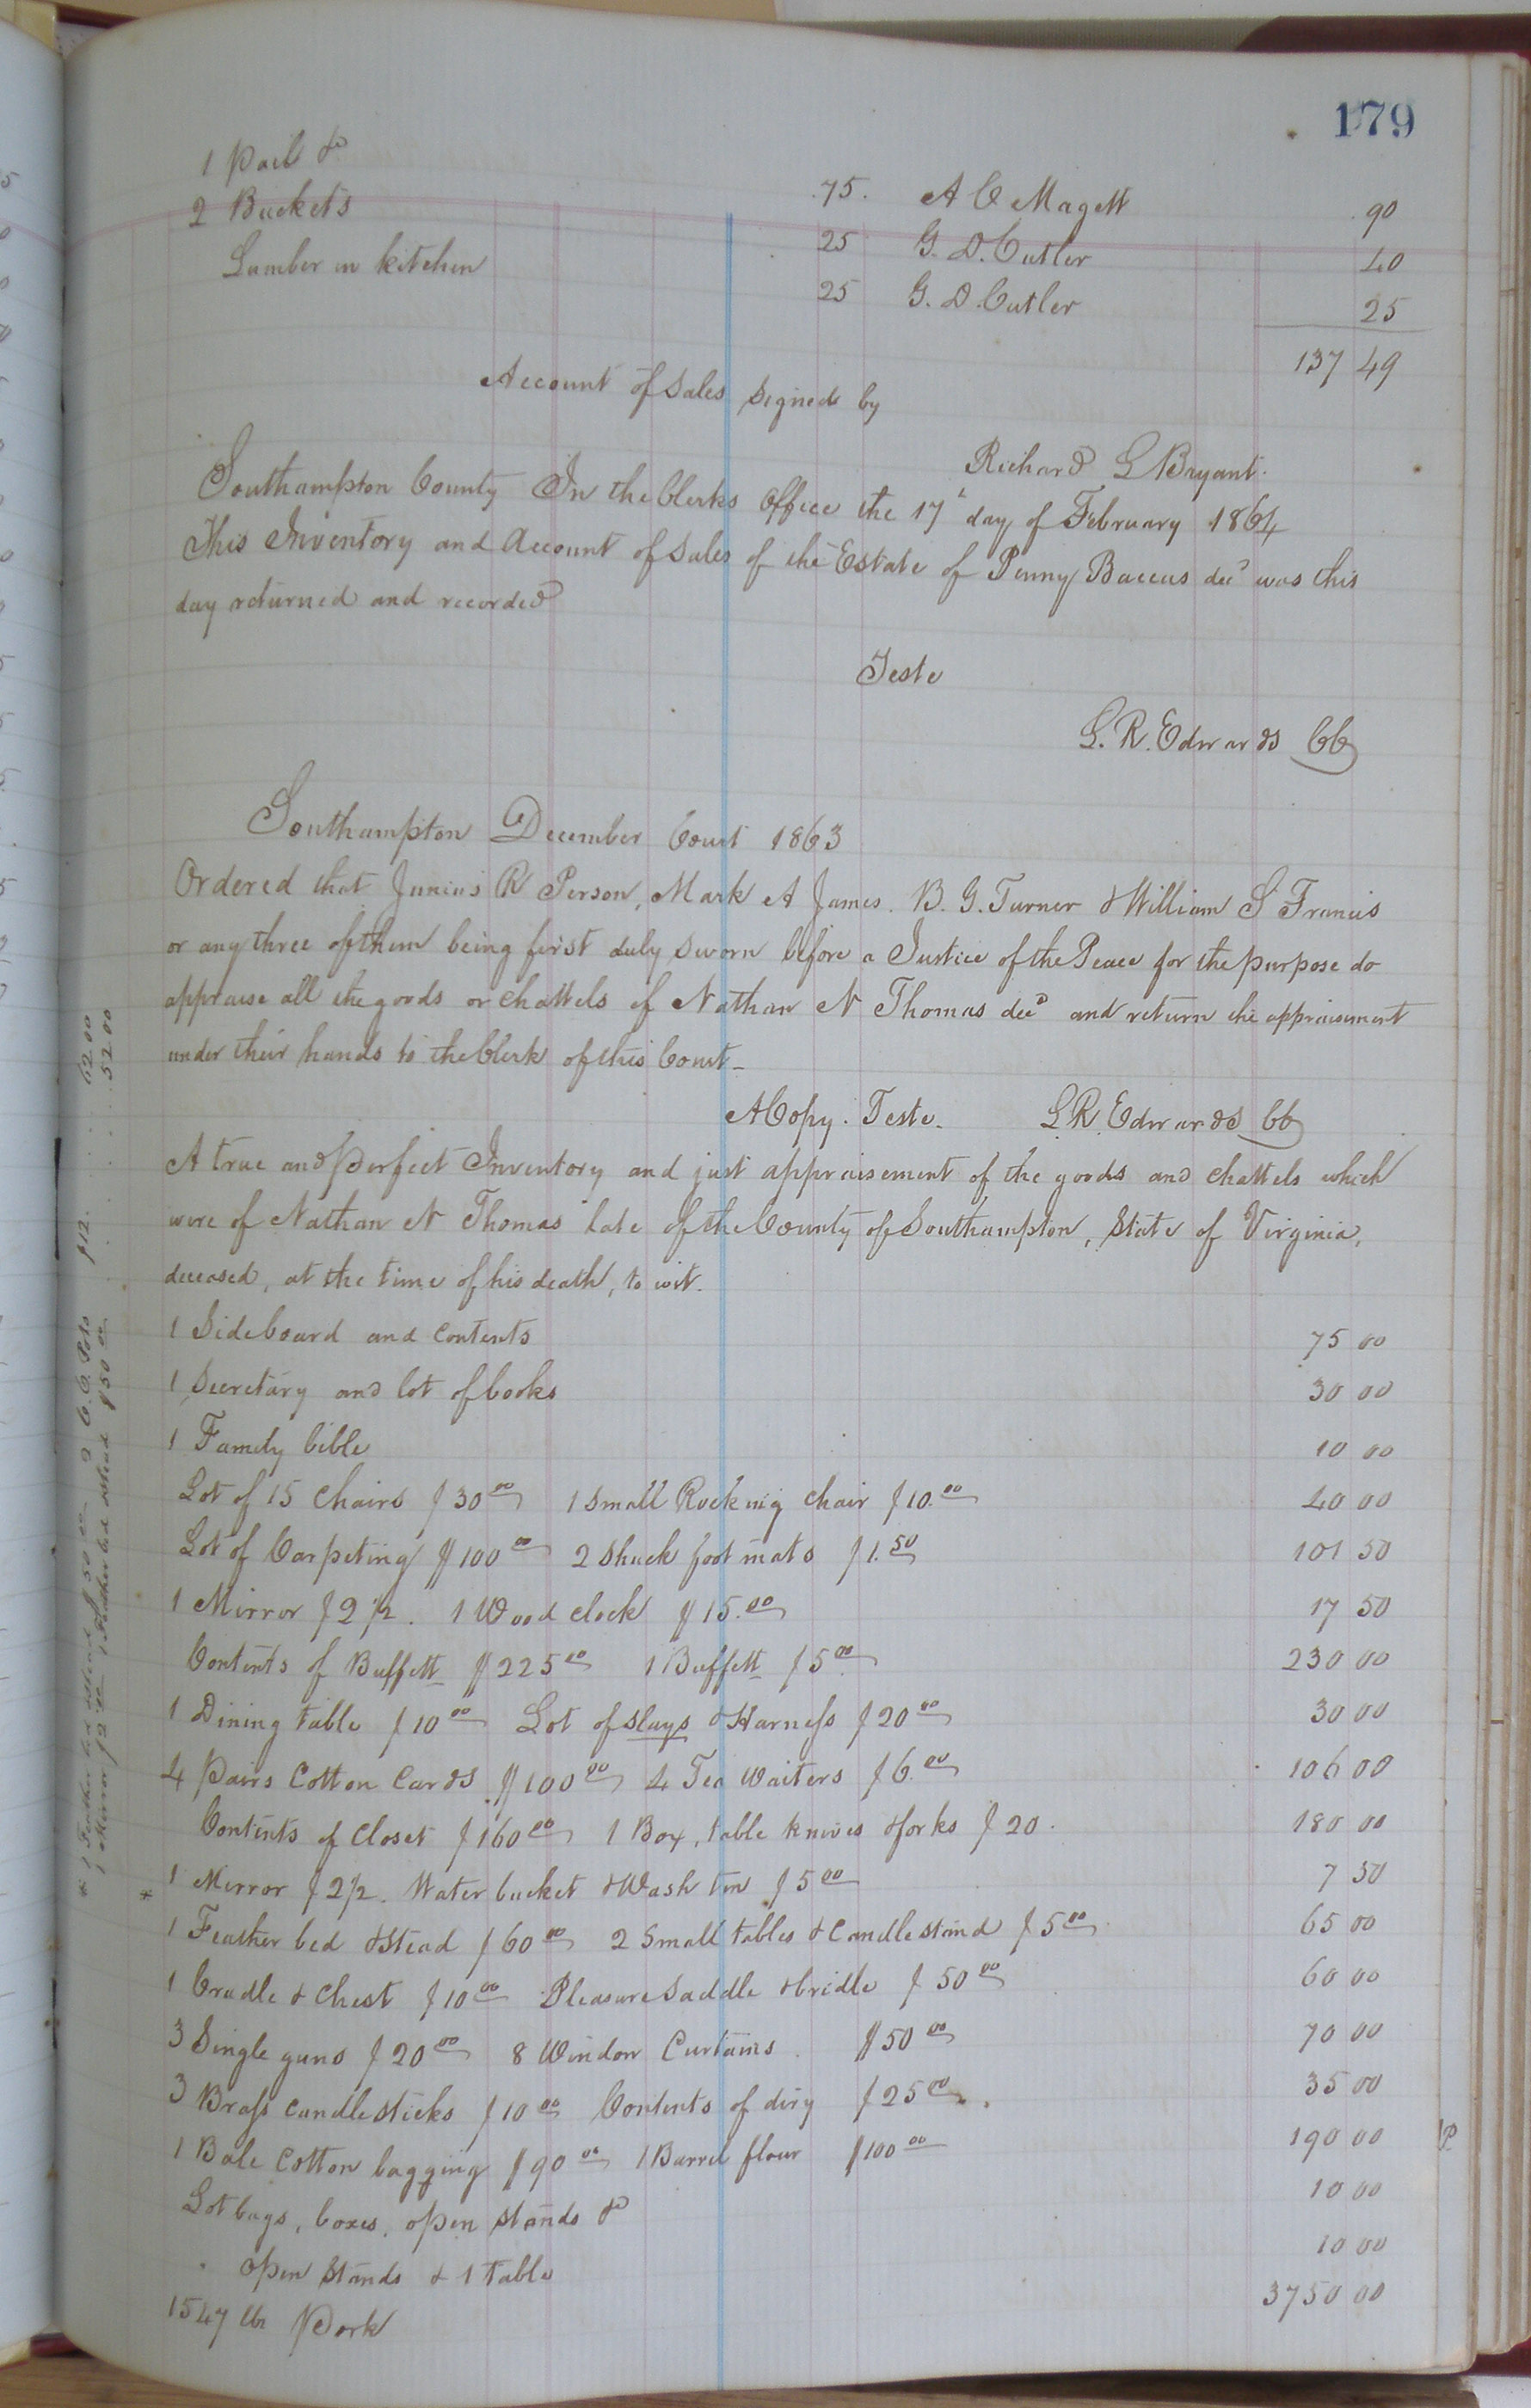 179
1 Pail &c
2 Buckets .75. A C Magett 90
Lumber in kitchen 25 G. D. Cutler 40
25 G. D. Cutler 25
137 49
Account of Sales signed by
Richard L Bryant.
Southampton County In the Clerks Office the 17th day of February 1864
This Inventory and Account of Sales of the Estate of Penny Baccus decd was this
day returned and recorded
Teste
L. R. Edwards CC
Southampton December Court 1863
Ordered that Junius R Person, Mark A James. B. G. Turner & William S Francis
or any three of them being first duly sworn before a Justice of the Peace for the purpose do
appraise all the goods or chattels of Nathan N Thomas decd and return the appraisement
under their hands to the Clerk of this Court_
A Copy. Teste. L. R. Edwards CC
A true and perfect Inventory and just appraisement of the goods and chattels which
were of Nathan N Thomas late of the County of Southampton, State of Virginia,
deceased, at the time of his death, to wit.
1 Sideboard and contents 75 00
1 Secretary and lot of books 30 00
1 Family bible 10 00
Lot of 15 Chairs $30 00 1 Small Rocking chair $10.00 40 00
Lot of Carpeting $100 00 2 Shuck foot mats $1.50 101 50
1 Mirror $2 1/2. 1 Wood clock $15.00 17 50
Contents of Buffett $225 00 1 Buffett $5 00 230 00
1 Dining table $10 00 Lot of slays & Harness $20 00 30 00
4 Pairs Cotton Cards $100 00 4 Tea Waiters $6.00 106 00
Contents of Closet $160 00 1 Box, table knives & forks $20. 180 00
* 1 Mirror $2 1/2. Water bucket & Wash tin $5 00 7 50
1 Feather bed & stead $60 00 2 Small tables & Candlestand $5 00 65 00
1 Cradle & Chest $10 00 Pleasure Saddle & bridle $50 00 60 00
3 Single guns $20 00 8 Window Curtains. $50 00 70 00
3 Brass candlesticks $10 00 Contents of diry $25 00 35 00
1 Bale Cotton bagging $90 00 1 Barrel flour $100 00 190 00
Lot bags, boxes, open stands &c 10 00
open stands & 1 table 10 00
1547 lbs Pork 3750 00
* 1 Feather bed & stead $50 00 2 C. C. Pots $12. 62 00
1 Mirror $2 00 1 Feather bed & stead $50 00 52 00